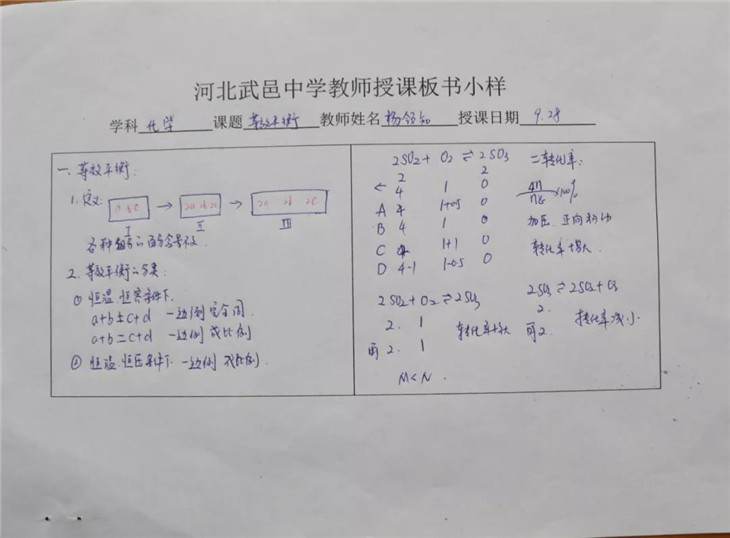 河北武邑中学教师授课板书小样
学科 化学 课题 等效平衡 教师姓名 授课日期 9.28
一、等效平衡:
1. 定义:
a b c → 2a 2b 2c → 2a 2b 2c
I II III
各种组分的百分含量不变
2. 等效平衡的分类:
① 恒温 恒容条件下
a+b≠c+d 一边倒 完全同
a+b=c+d 一边倒 成比例
② 恒温 恒压条件下 一边倒 成比例
2SO2 + O2 ⇌ 2SO3
2 2
4 1 0
A 4 1+0.5 0
B 4 1 0
C 4 1+1 0
D 4-1 1-0.5 0
2SO2 + O2 ⇌ 2SO3
2. 1
再2. 1
转化率增大
M<N.
二、转化率:
Δn/n始 ×100%
加压 正向移动
转化率增大
2SO3 ⇌ 2SO2 + O2
2.
再2. 转化率减小.